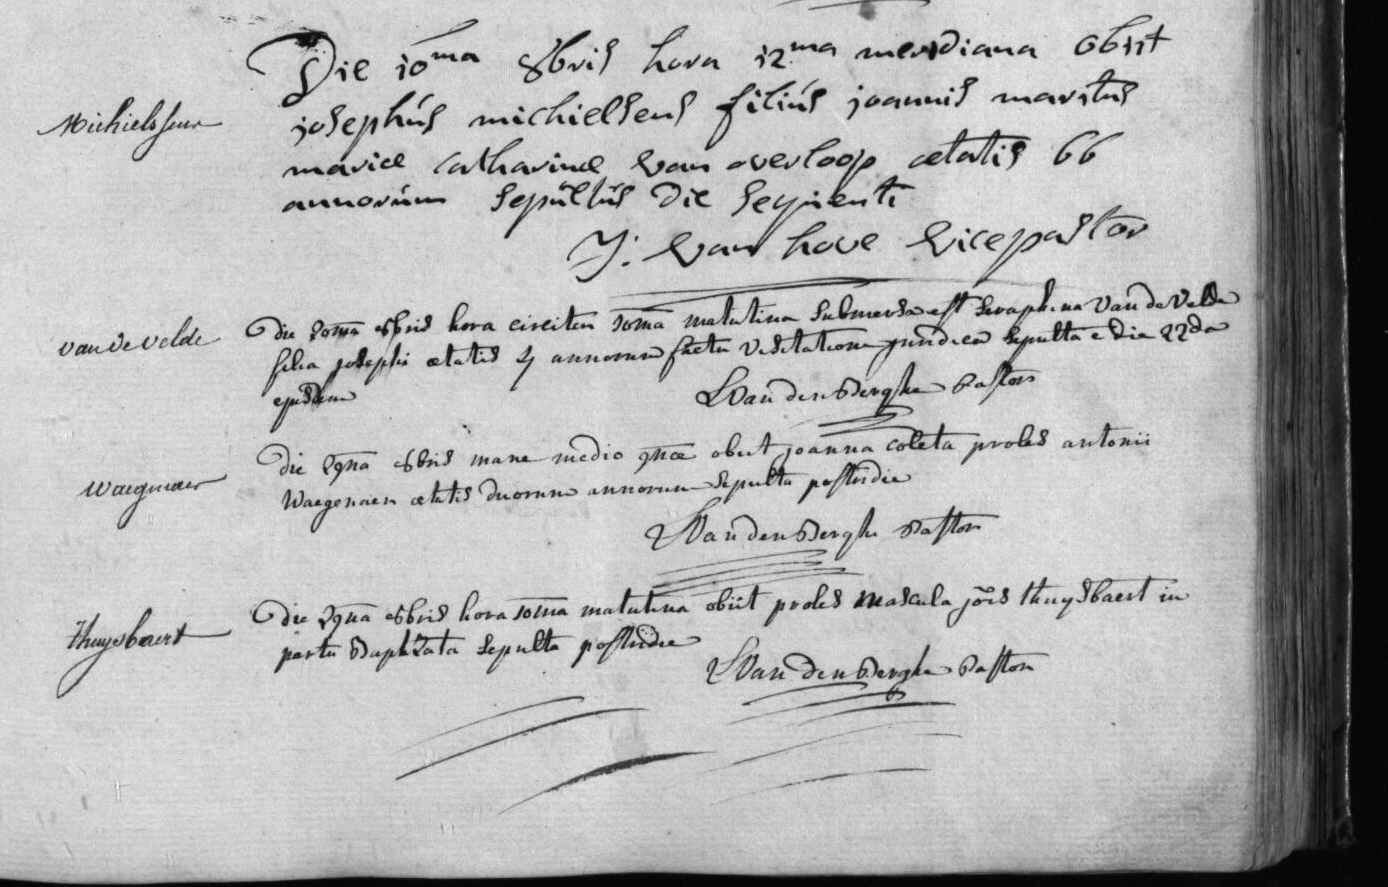 Michielssens
Die 10ma 8bris hora 12ma meridiana obiit
josephus michielsens filius joannis maritus
mariæ catharinæ van overloop ætatis 66
annorum sepultus die sequenti
J: van hove vicepastor
van de velde
Die 20ma 8bris hora circiter 10ma matutina submersa est seraphina van de velde
filia josephi ætatis 4 annorum facta visitatione juridica sepulta e die 22da
ejusdem
Van den Berghe Pastor
Waegenaer
Die 29na 8bris mane medio 9næ obiit joanna coleta proles antonii
Waegenaer ætatis duorum annorum sepulta postridie
Van den Berghe Pastor
Thuysbaert
Die 29na 8bris hora 10ma matutina obiit proles mascula jois thuysbaert in
partu baptizata sepulta postridie
Van den Berghe Pastor